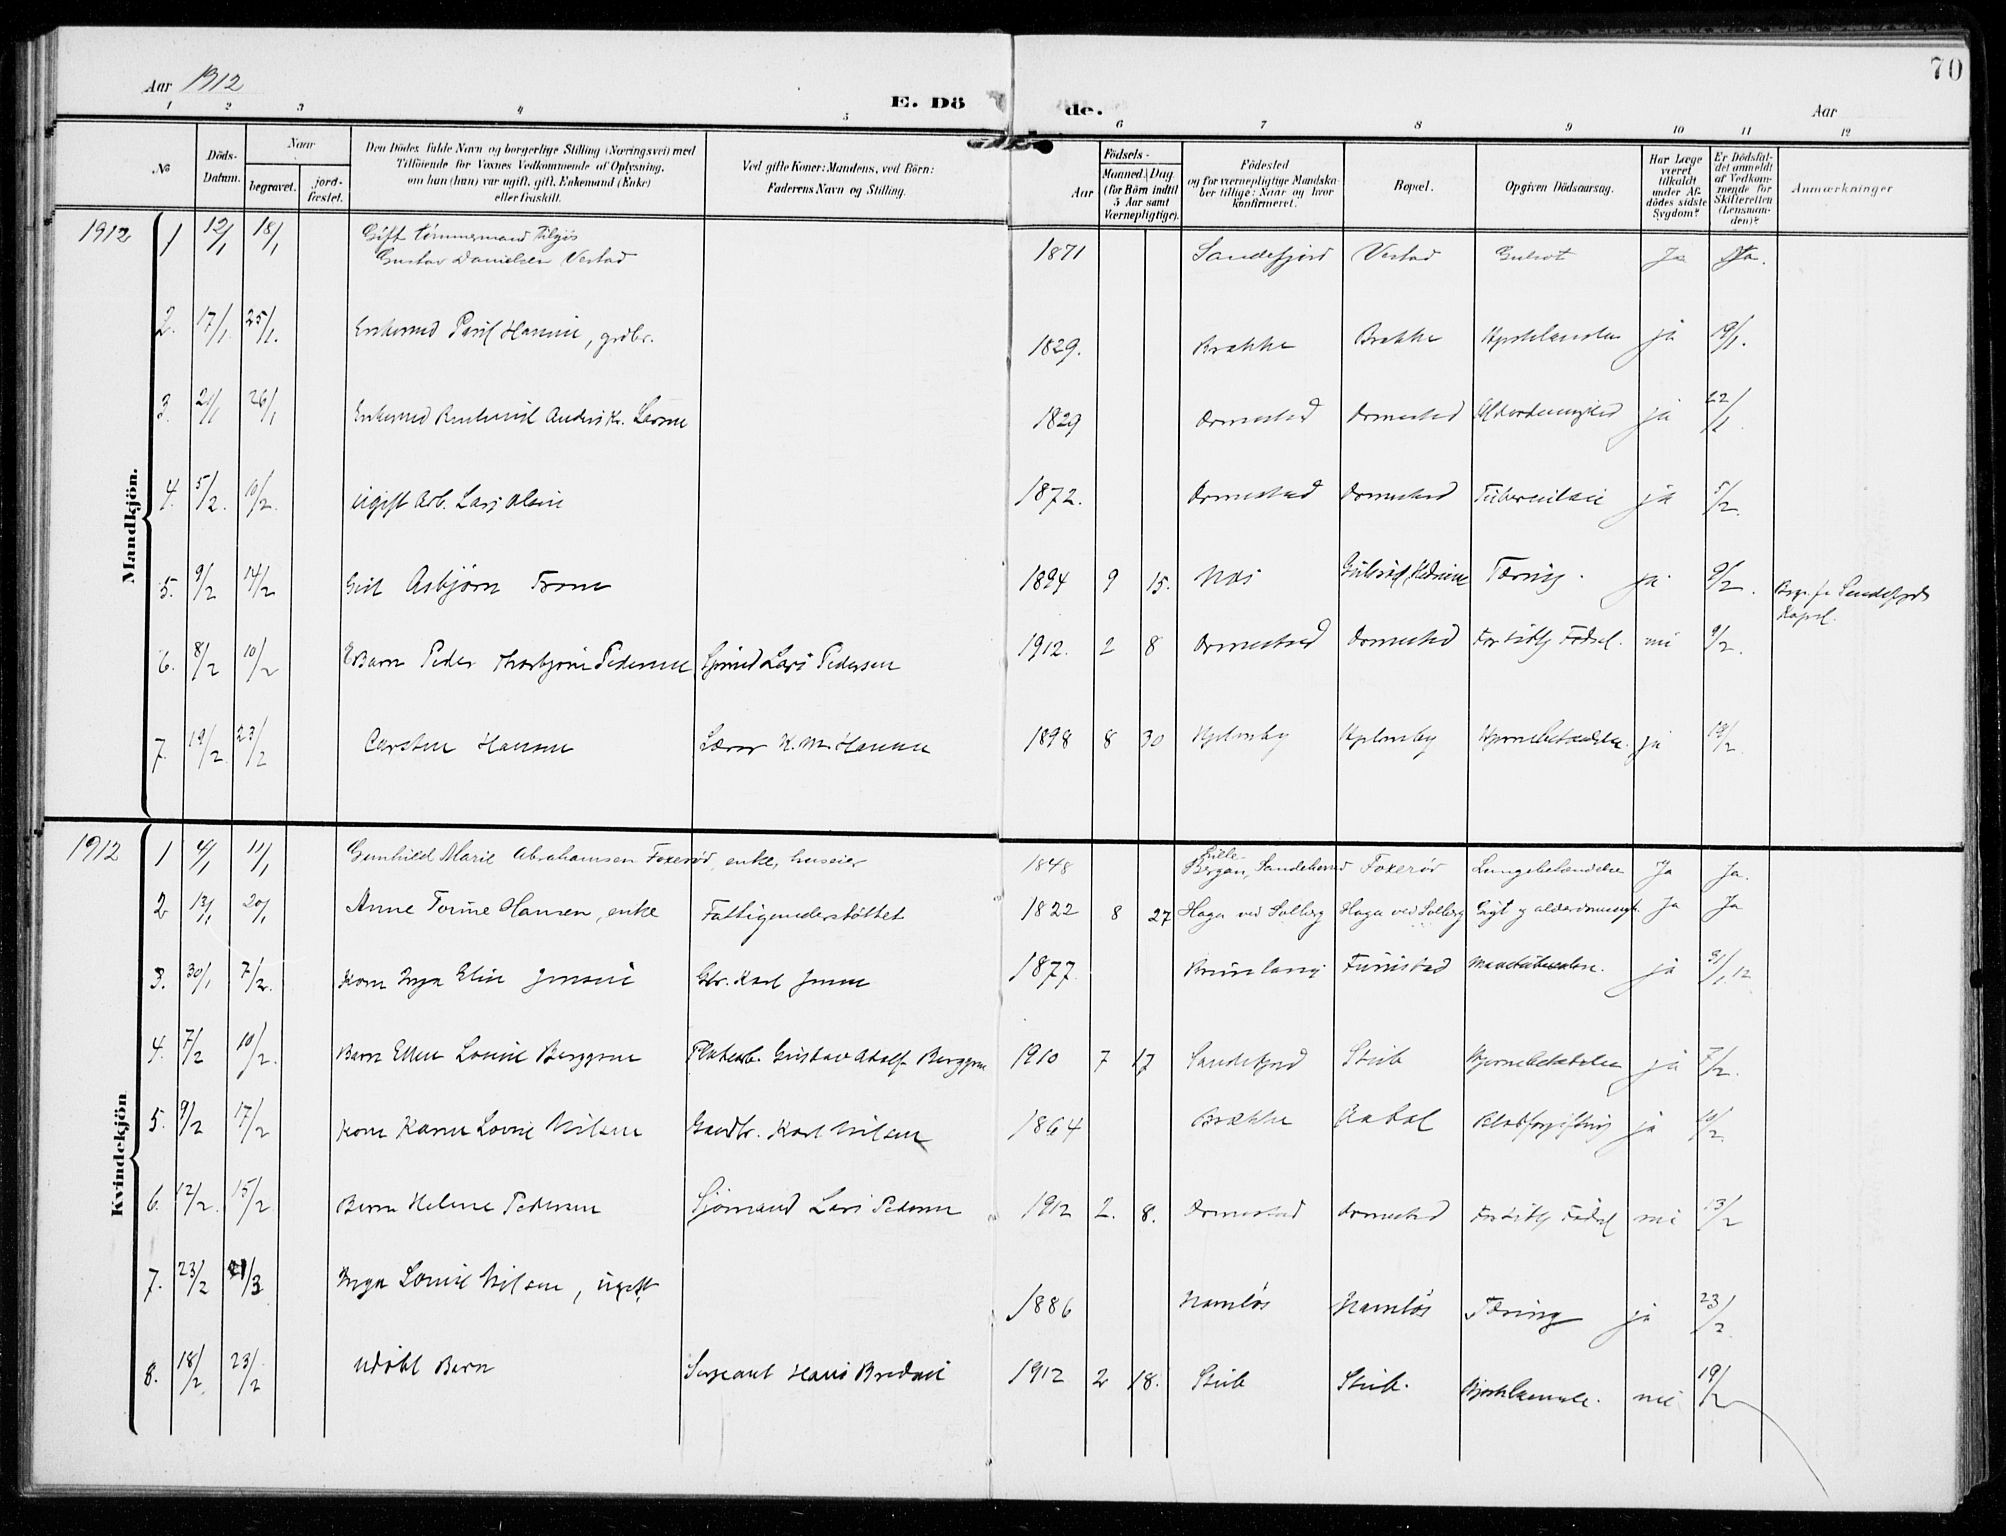 70
Aar 1912
E. Dö de.
Aar
1 2 3 4 5 6 7 8 9 10 11 12
No
Döds-Datum.
Naar
begravet.
jord-fæstet.
Den Dödes fulde Navn og borgerlige Stilling (Næringsvei) med
Tilföiende for Voxnes Vedkommende af Oplysning,
om han (hun) var ugift, gift, Enkemand (Enke)
eller fraskilt.
Ved gifte Koner: Mandens, ved Börn:
Faderens Navn og Stilling.
Aar
Födsels-
Maaned. Dag
(for Börn indtil
5 Aar samt
Værnepligtige).
Födested
og for værnepligtige Mandska-
ber tillige: Naar og hvor
konfirmeret.
Bopæl.
Opgiven Dödsaarsag.
Har Læge
været
tilkaldt
under Af-
dödes sidste
Sygdom?
Er Dödsfal-
det anmeldt
af Vedkom-
mende for
Skifteretten
(Lensman-
den)?
Anmærkninger
Mandkjön.
1912 1 12/1 18/1 Gift tømmermand
Gustav Danielsen Vestad 1871 Sandefjord Vestad Ja Ja.
2. 17/1 25/1. Hansen, grdbr. 1829. Brække Brække ja 19/1.
3. 21/1 26/1 1829 Ormestad Ormestad ja 22/1
4. 5/2. 10/2. ugift Arb. Lars Olsen 1872. Ormestad Ormestad Tuberculose ja 5/2.
5. 9/2 14/2 Asbjørn 1894 9 15. Næs Tæring. ja 9/2.
Kapel.
6. 8/2 10/2 Barn Peder Thorbjørn Pedersen Sjømd Lars Pedersen 1912. 2 8 Ormestad Ormestad For tidlig Fødsel. nei 9/2.
7. 19/2 23/2 Carsten Hansen Lærer K. M. Hansen 1898 8 30 Hjernebetændelse. ja 19/2.
Kvindekjön
1912 1 4/1 11/1 Gunhild Marie Abrahamsen Foxerød, enke, huseier 1848 Lille
Bergan, Sandeherred Foxerød Lungebetændelse Ja Ja.
2 13/1 20/1 Anne Torine Hansen, enke Fattigunderstøttet 1822 8 27 Haga ved Solberg Haga ved Solberg Gigt og Ja Ja
3. 30/1 7/2. Kone Inga Elise Jensen Gbr. Karl Jensen 1877. ja 31/1 12
4. 7/2 10/2. Barn Ellen Lovise Berggren Gustav Adolf Berggren 1910 7 17 Sandefjord Stub Hjernebetændelse ja 7/2.
5. 9/2 17/2 Kone Karen Lovise Nilsen Gaardbr. Karl Nilsen 1864 Brække Blodforgiftning ja 10/2.
6. 12/2. 15/2 Barn Helene Pedersen Sjømand Lars Pedersen 1912 2. 8. Ormestad Ormestad For tidlig Fødsel nei 13/2
7. 23/2 1/3 Inga Lovise Nilsen, ugift 1886 Namløs Namløs Tæring ja 23/2.
8. 18/2. 23/2 udøbt Barn Sergeant Hans 1912 2 18. Stub Stub. nei 19/2